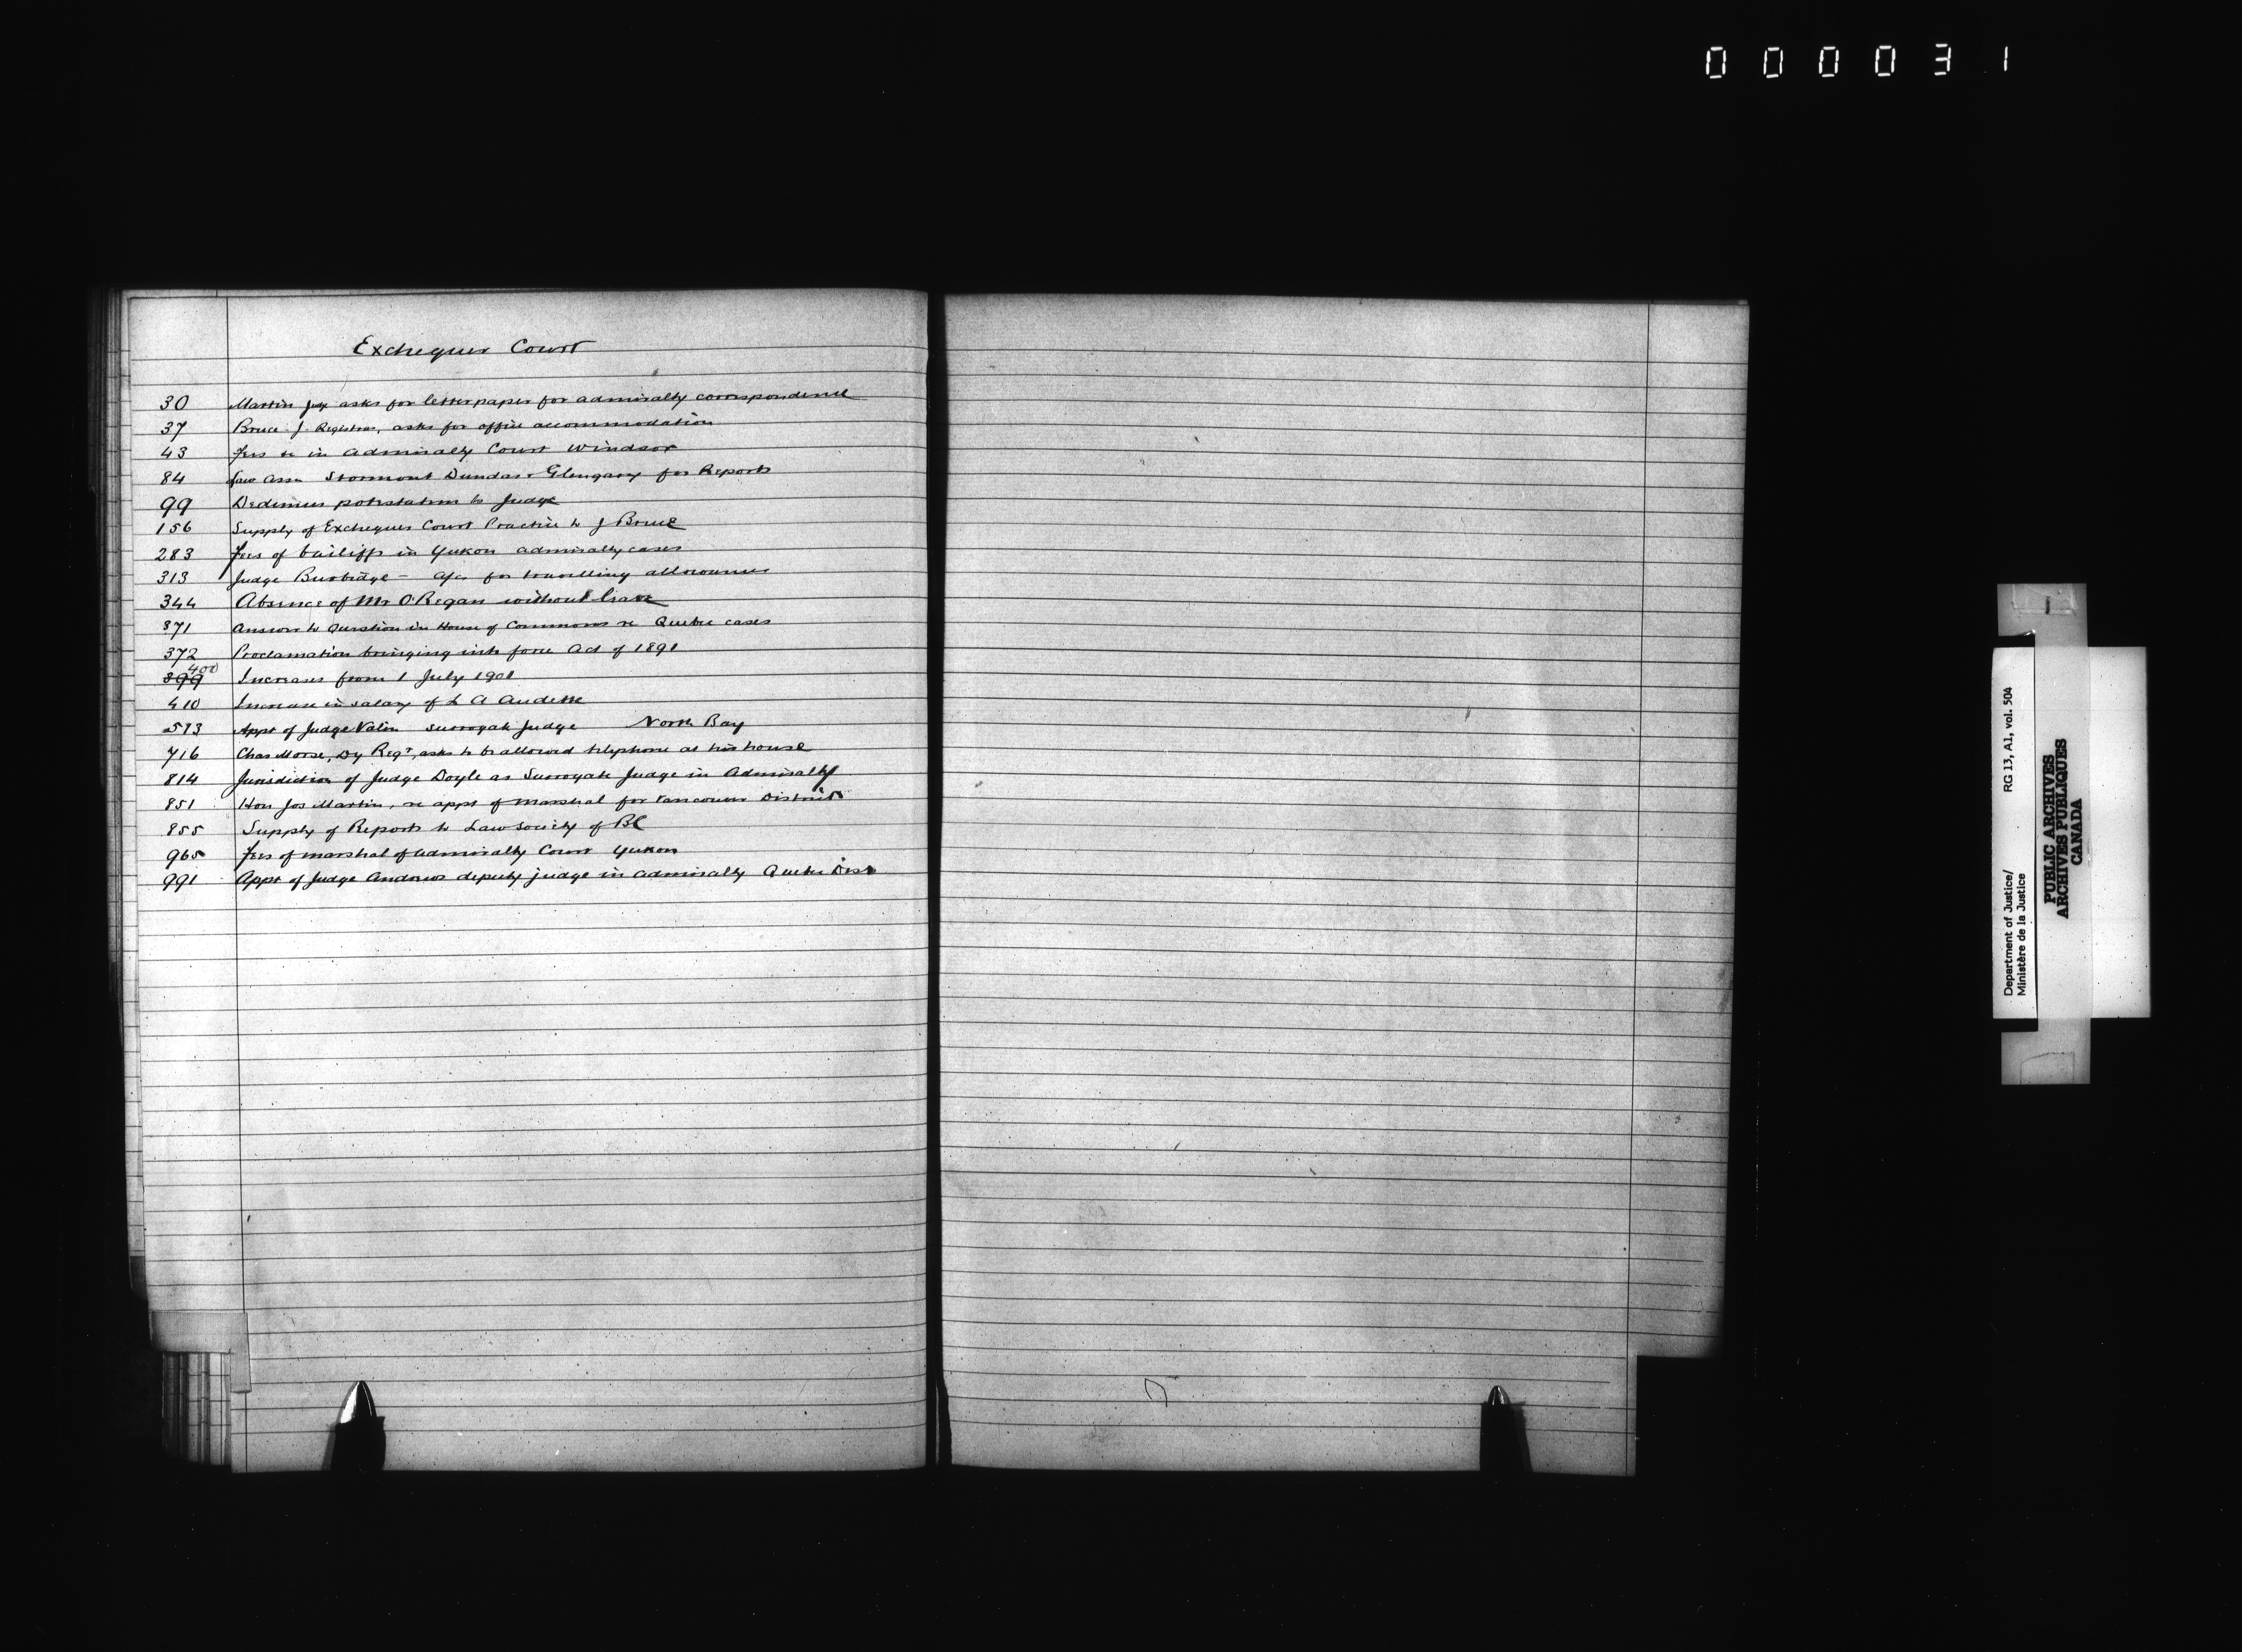 000031
Exchequer Court
30 Martin Judge asks for letterpaper for admiralty correspondence
37 Bruce J. Registrar, asks for office accommodation
43 Fees &c in Admiralty Court Windsor
84 Law Assn Stormont Dundas & Glengary for Reports
99 Dedimus potestatem to Judge
156 Supply of Exchequer Court Practice to J Bruce
283 Fees of bailiffs in Yukon admiralty cases
313 Judge Burbidge - a/cs for travelling allowances
344 Absence of Mr O'Regan without leave
371 Answer to Question in House of Commons re Quebec cases
372 Proclamation bringing into force Act of 1891
400
399 Increases from 1 July 1901
410 Increase in salary of L A Audette
513 Appt of Judge Valin Surrogate Judge North Bay
716 Chas Morse, Dy Regr, asks to be allowed telephone at his house
814 Jurisdiction of Judge Doyle as Surrogate Judge in Admiralty
851 Hon Jos Martin, re appt of Marshal for Vancouver District
855 Supply of Reports to Law Society of BC
965 Fees of marshal of Admiralty Court Yukon
991 Appt of Judge Andrews deputy judge in admiralty Quebec Dist
Department of Justice/ RG 13, A1, vol. 504
Ministère de la Justice
PUBLIC ARCHIVES
ARCHIVES PUBLIQUES
CANADA